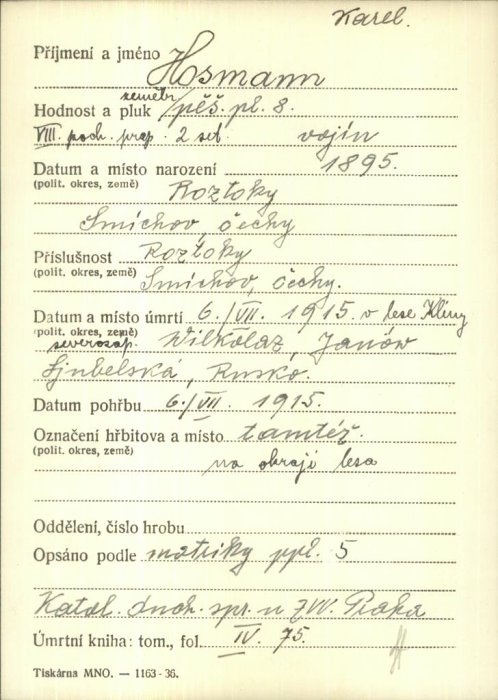 Karel.
Příjmení a jméno Hosmann
zeměbr.
Hodnost a pluk pěš. pl. 8.
VIII. poch. prap. 2 set. vojín
Datum a místo narození 1895.
(polit. okres, země) Roztoky
Smíchov, čechy
Příslušnost Roztoky
(polit. okres, země) Smíchov, čechy.
Datum a místo úmrtí 6./VII. 1915. v lese Klíny
(polit. okres, země) severozáp. Wilkolaz, Janów
Ljubelská, Rusko.
Datum pohřbu 6./VII. 1915.
Označení hřbitova a místo tamtéž.
(polit. okres, země)
na okraji lesa
Oddělení, číslo hrobu
Opsáno podle matriky ppl. 5
Katol. duch. spr. u ZVV. Praha
Úmrtní kniha: tom., fol. IV. 75.
Tiskárna MNO. — 1163-36.